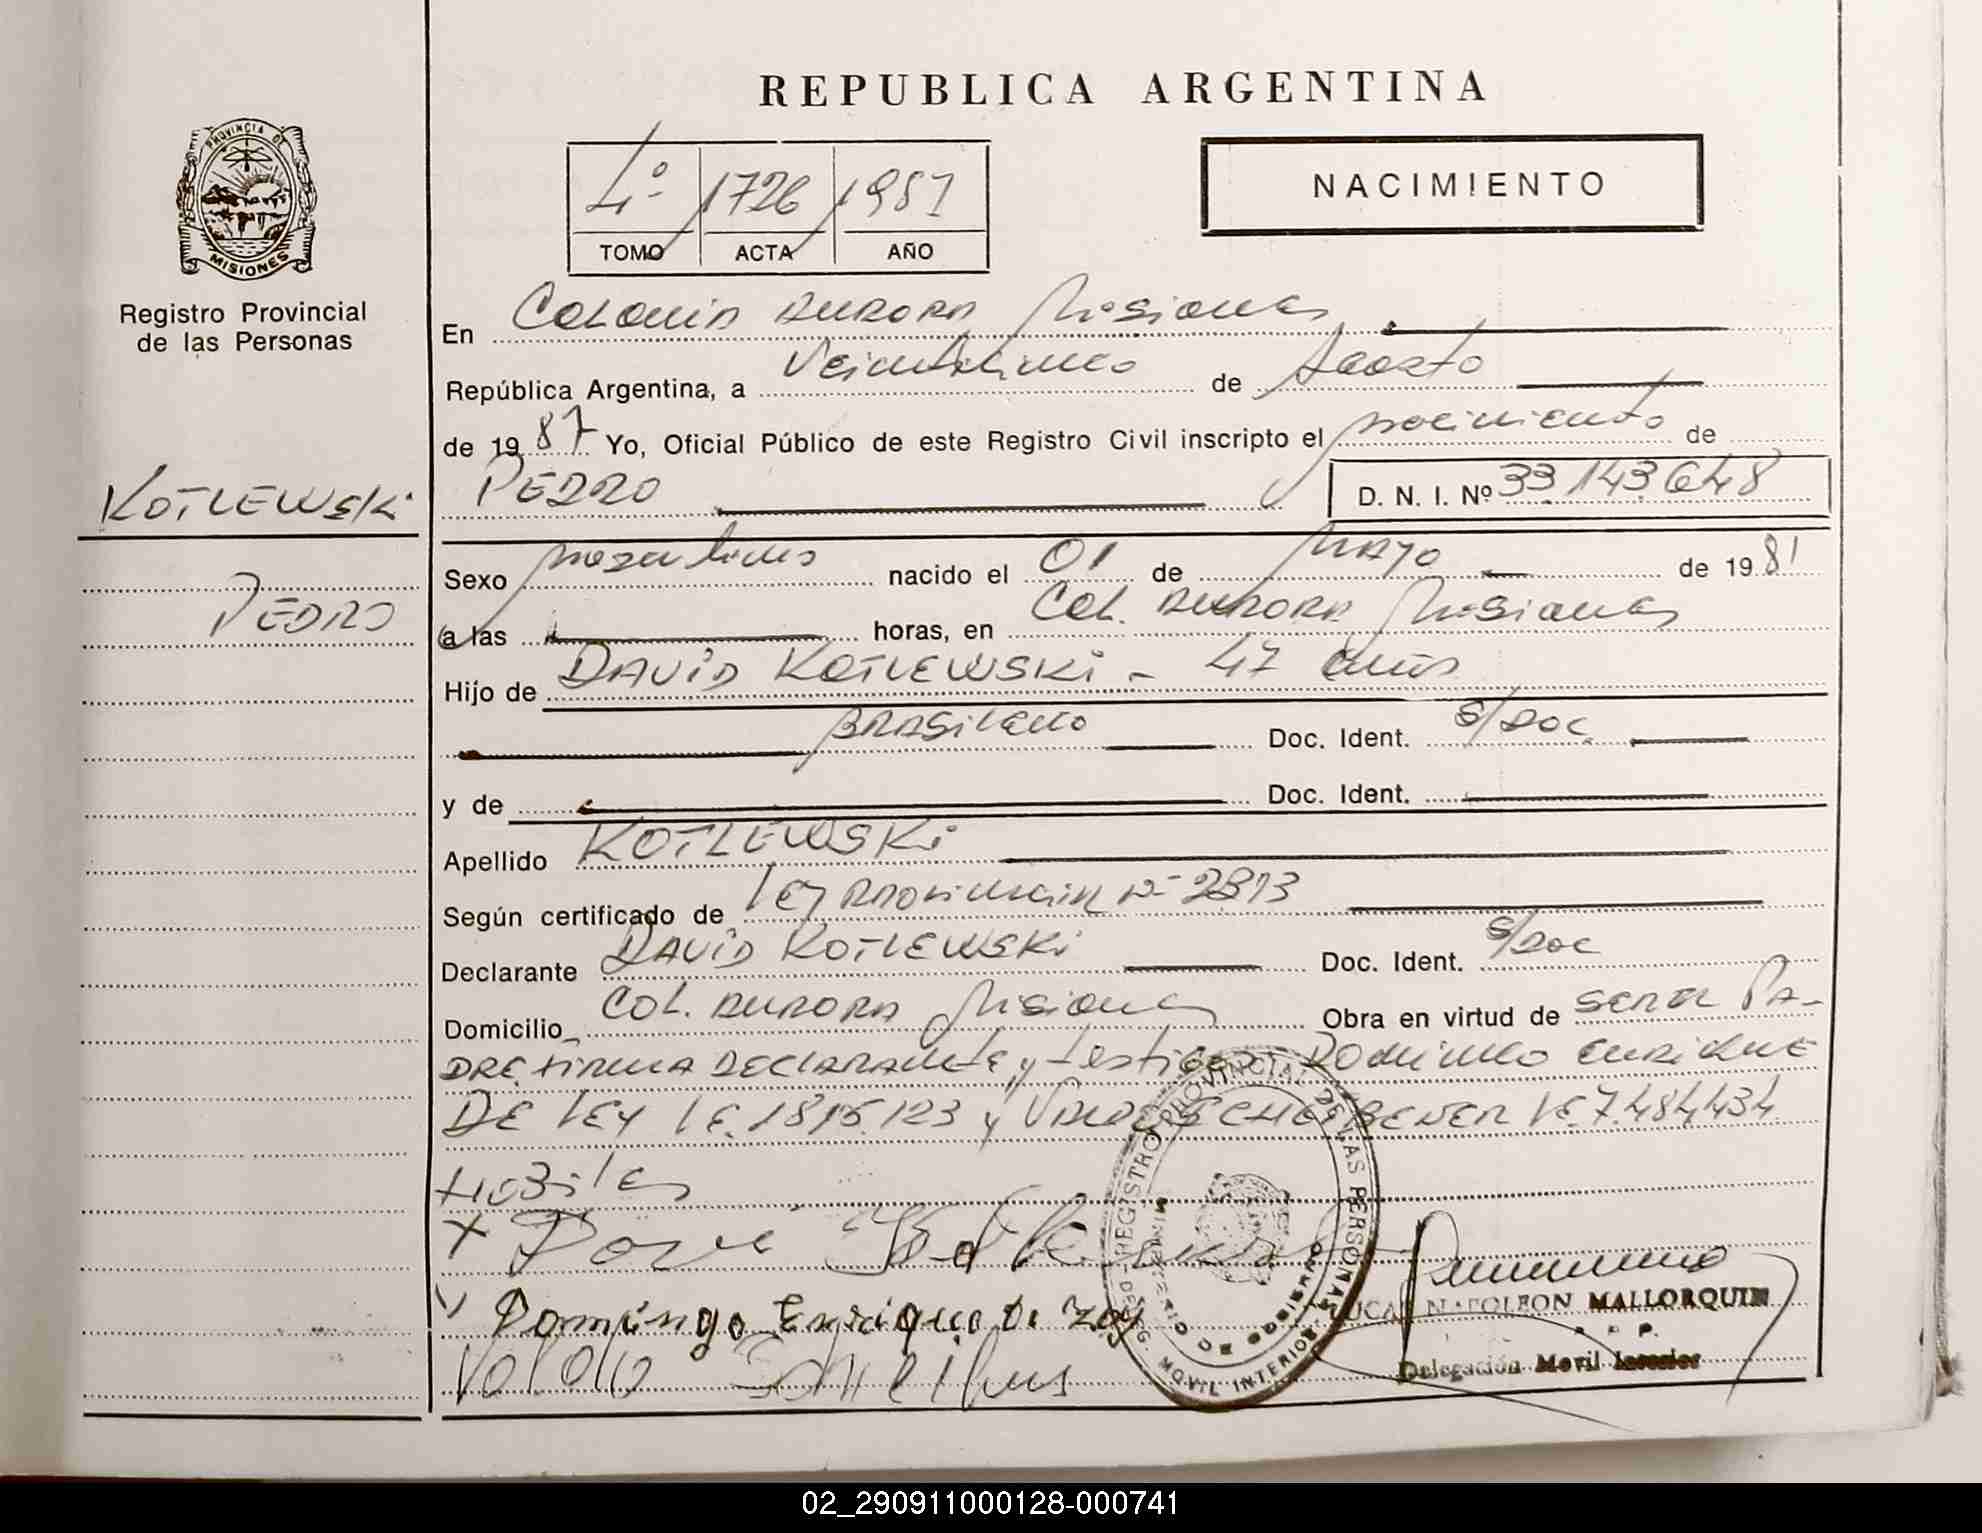 REPUBLICA ARGENTINA
PROVINCIA DE
MISIONES
Registro Provincial
de las Personas
4º 1726 1987
TOMO ACTA AÑO
NACIMIENTO
En Colonia Aurora Misiones
República Argentina, a Veinticinco de Agosto
de 1987 Yo, Oficial Público de este Registro Civil inscripto el nacimiento de
KOTLEWSKi
PEDRO D. N. I. Nº 33.143.648
Sexo masculino nacido el 01 de MAYO de 1981
PEDRO
a las horas, en Col. Aurora Misiones
Hijo de DAViD KOTLEWSKi - 47 años
BRASileño Doc. Ident. S/Doc.
y de Doc. Ident.
Apellido KOTLEWSKi
Según certificado de Ley Provincial Nº 2813
Declarante DAViD KOTLEWSKi Doc. Ident. S/Doc
Domicilio Col. Aurora Misiones Obra en virtud de SER EL PA-
DRE, FiRMA DECLARANTE y testigos DOMiNGO ENRiQUE
DE LEY LE. y LE. 7.484.434
HÁBiles
X
Domingo Enrique De Ley
REGISTRO PROVINCIAL DE LAS PERSONAS
MINISTERIO DE GOBIERNO
DELEG. MOVIL INTERIOR
LUCAS NAPOLEON MALLORQUIN
Delegación Movil Interior
02_290911000128-000741